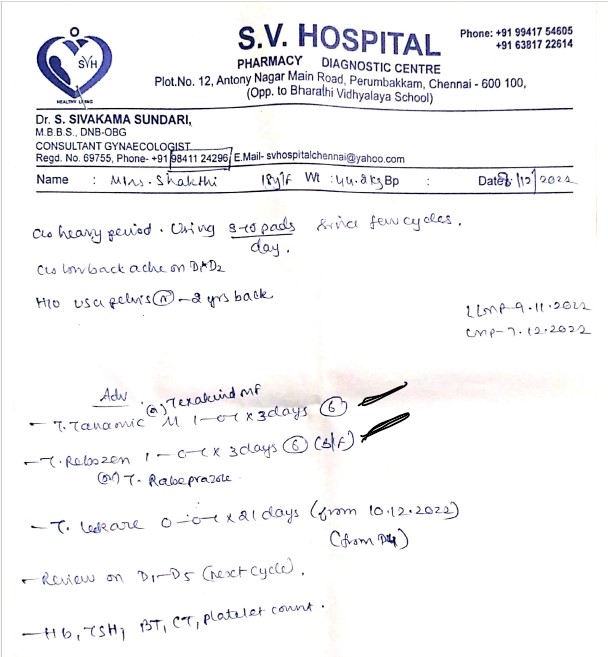 SVH
HEALTHY LIVING
S.V. HOSPITAL
PHARMACY DIAGNOSTIC CENTRE
Plot.No. 12, Antony Nagar Main Road, Perumbakkam, Chennai - 600 100,
(Opp. to Bharathi Vidhyalaya School)
Phone: +91 99417 54605
+91 63817 22614
Dr. S. SIVAKAMA SUNDARI,
M.B.B.S., DNB-OBG
CONSULTANT GYNAECOLOGIST
Regd. No. 69755, Phone- +91 98411 24296, E.Mail- svhospitalchennai@yahoo.com
Name : Mrs. Shakthi 18y/F Wt : 44.2kg Bp : Date 8/12/2022
c/o heavy period. Using 8-10 pads/day. Since few cycles.
c/o low back ache on D1 D2
H/O USG pelvis (N) - 2 yrs back
LLMP-9.11.2022
LMP-7.12.2022
Adv
(or) Texakind MF
- T. Tanamic M 1-0-1 x 3days (6)
- T. Rebozen 1-0-1 x 3days (6) (B/F)
(or) T. Rabeprazole
- T. 0-0-1 x 21 days (from 10.12.2022)
(from D4)
- Review on D1-D5 (next cycle).
- Hb, TSH, BT, CT, platelet count.